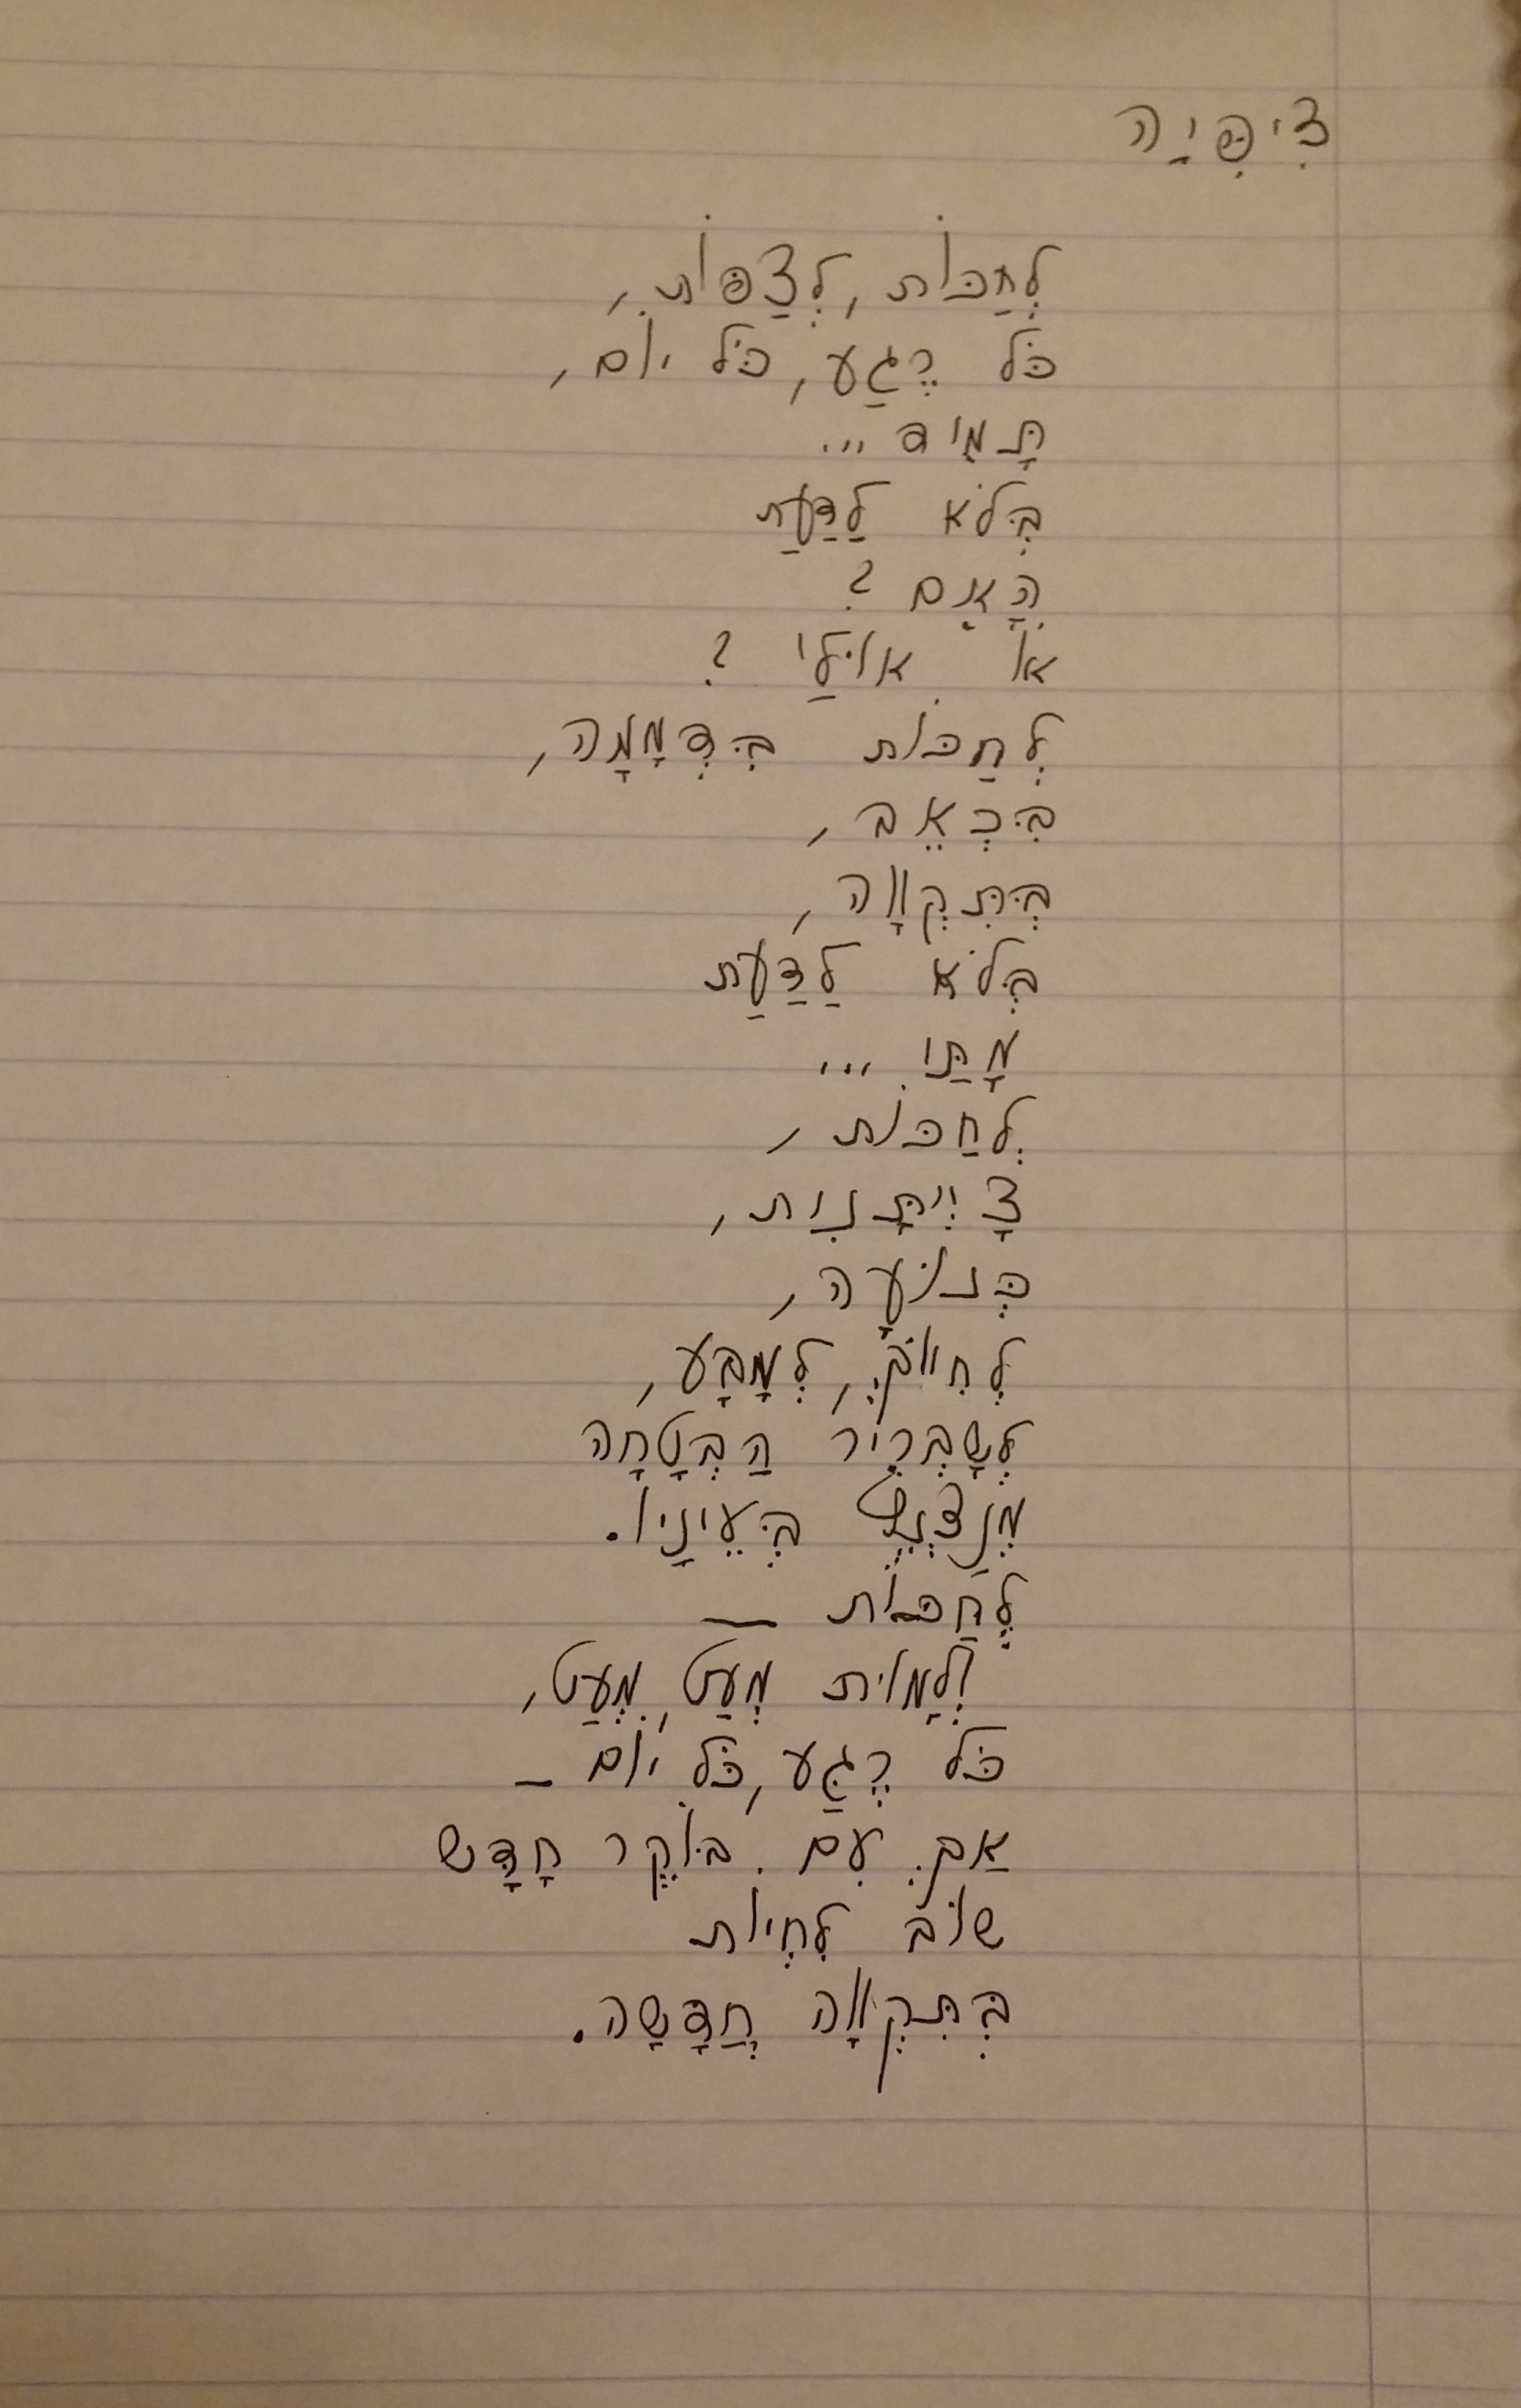 צִיפִּיָה
לְחַכּוֹת, לְצַפּוֹת,
כֹּל רֶגַע, כֹּל יוֹם,
תָּמִיד...
בְּלֹא לַדַּעַת
הַאִם?
אוֹ אוּלַי?
לְחַכּוֹת בִּדְמָמָה,
בִּכְאֵב,
בְּתִקְוָוה,
בְּלֹא לַדַּעַת
מָתַי...
לְחַכּוֹת,
צָיְיתָנִית,
כְּנוּעָה,
לְחִיּוּךְ, לְמַבָּע,
לְשַׁבְרִיר הַבְטָחָה
מְנַצְנֵץ בְּעֵינָיו.
לְחַכּוֹת –
וְלָמוּת מְעַט, מְעַט,
כֹּל רֶגַע, כֹּל יוֹם –
אַךְ עִם בּוֹקֶר חָדָשׁ
שׁוּב לִחְיוֹת
בְּתִקְוָוה חֲדָשָׁה.